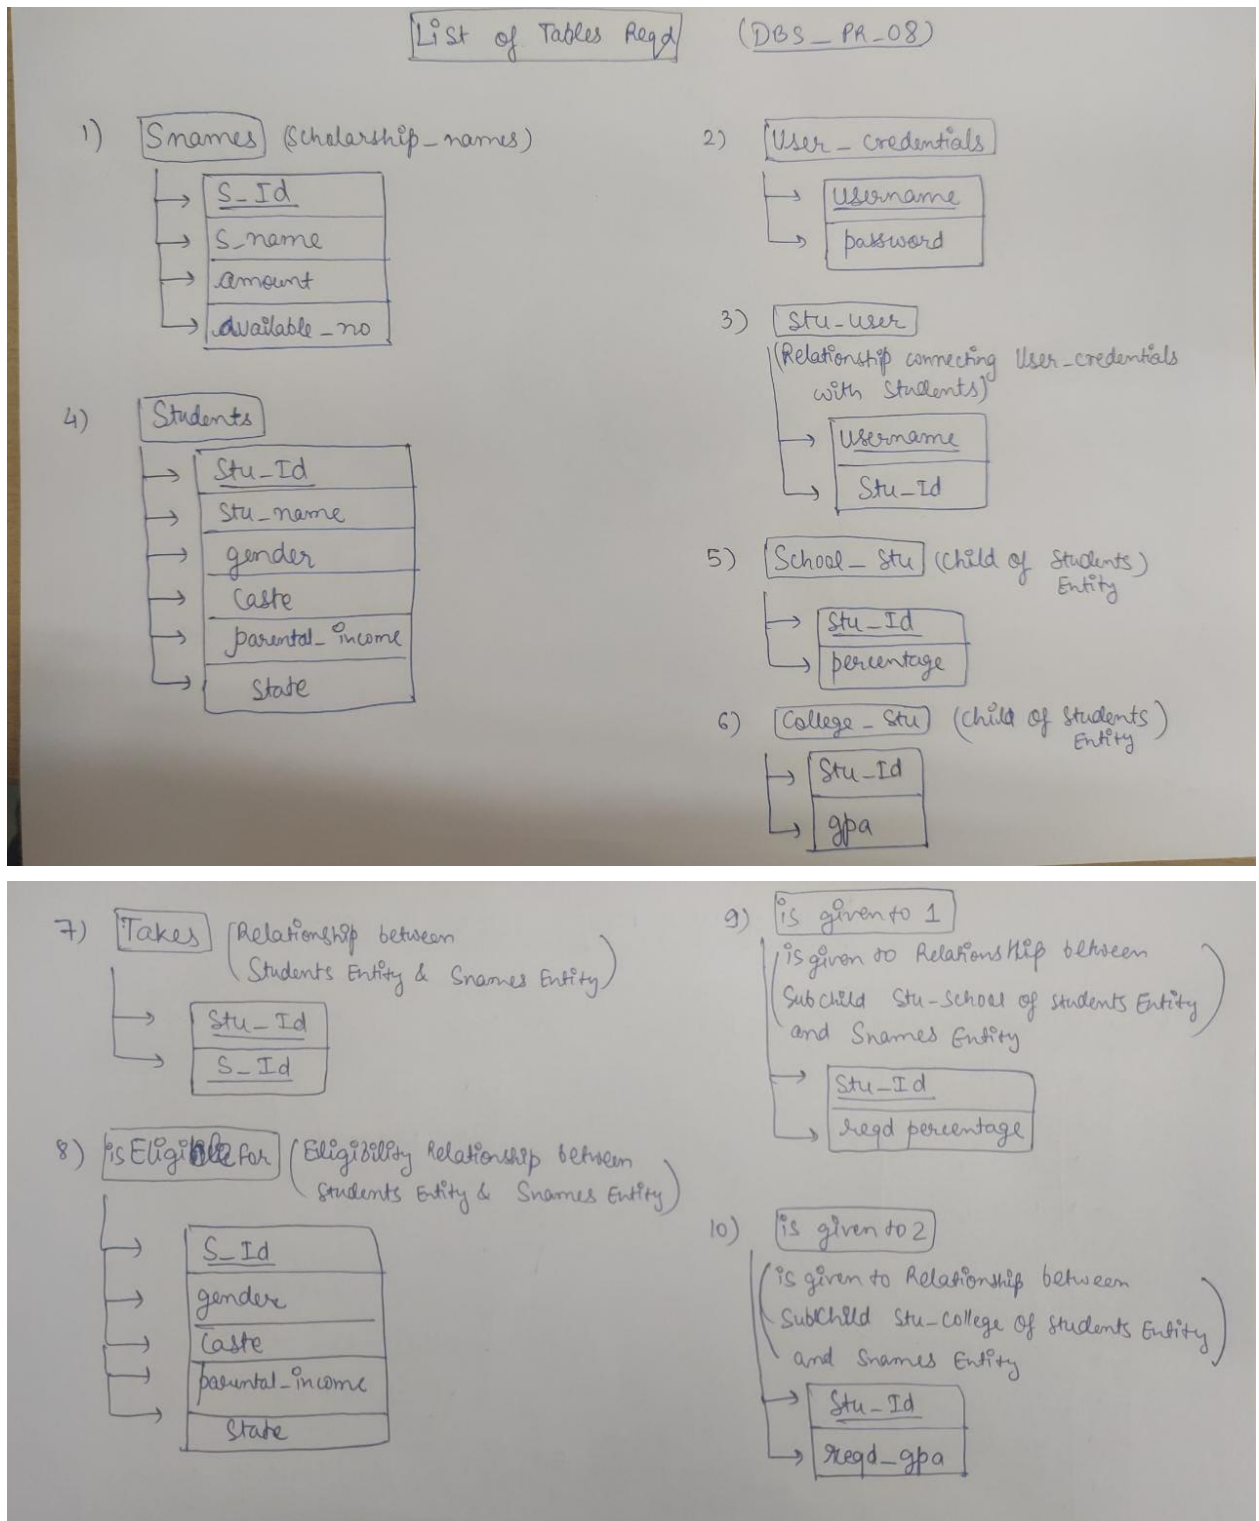 List of Tables Reqd (DBS_PR-08)
1) Snames (Scholarship_names)
S_Id
S_name
amount
available_no
2) User_credentials
username
password
3) Stu-user
(Relationship connecting User_credentials
with Students)
username
Stu_Id
4) Students
Stu_Id
Stu_name
gender
Caste
parental_income
State
5) School_Stu (Child of Students)
Entity
Stu_Id
percentage
6) College_Stu (Child of Students)
Entity
Stu_Id
gpa
7) Takes (Relationship between
Students Entity & Snames Entity)
Stu_Id
S_Id
8) isEligible for (Eligibility Relationship between
Students Entity & Snames Entity)
S_Id
gender
Caste
parental_income
State
9) is given to 1
(is given to Relationship between
Subchild Stu-School of Students Entity
and Snames Entity)
Stu_Id
reqd percentage
10) is given to 2
(is given to Relationship between
SubChild Stu-College of Students Entity
and Snames Entity)
Stu_Id
reqd_gpa